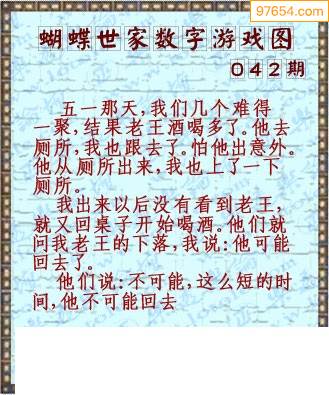 97654.com
蝴蝶世家数字游戏图
042期
五一那天,我们几个难得
一聚,结果老王酒喝多了。他去
厕所,我也跟去了。怕他出意外。
他从厕所出来,我也上了一下
厕所。
我出来以后没有看到老王,
就又回桌子开始喝酒。他们就
问我老王的下落,我说:他可能
回去了。
他们说:不可能,这么短的时
间,他不可能回去